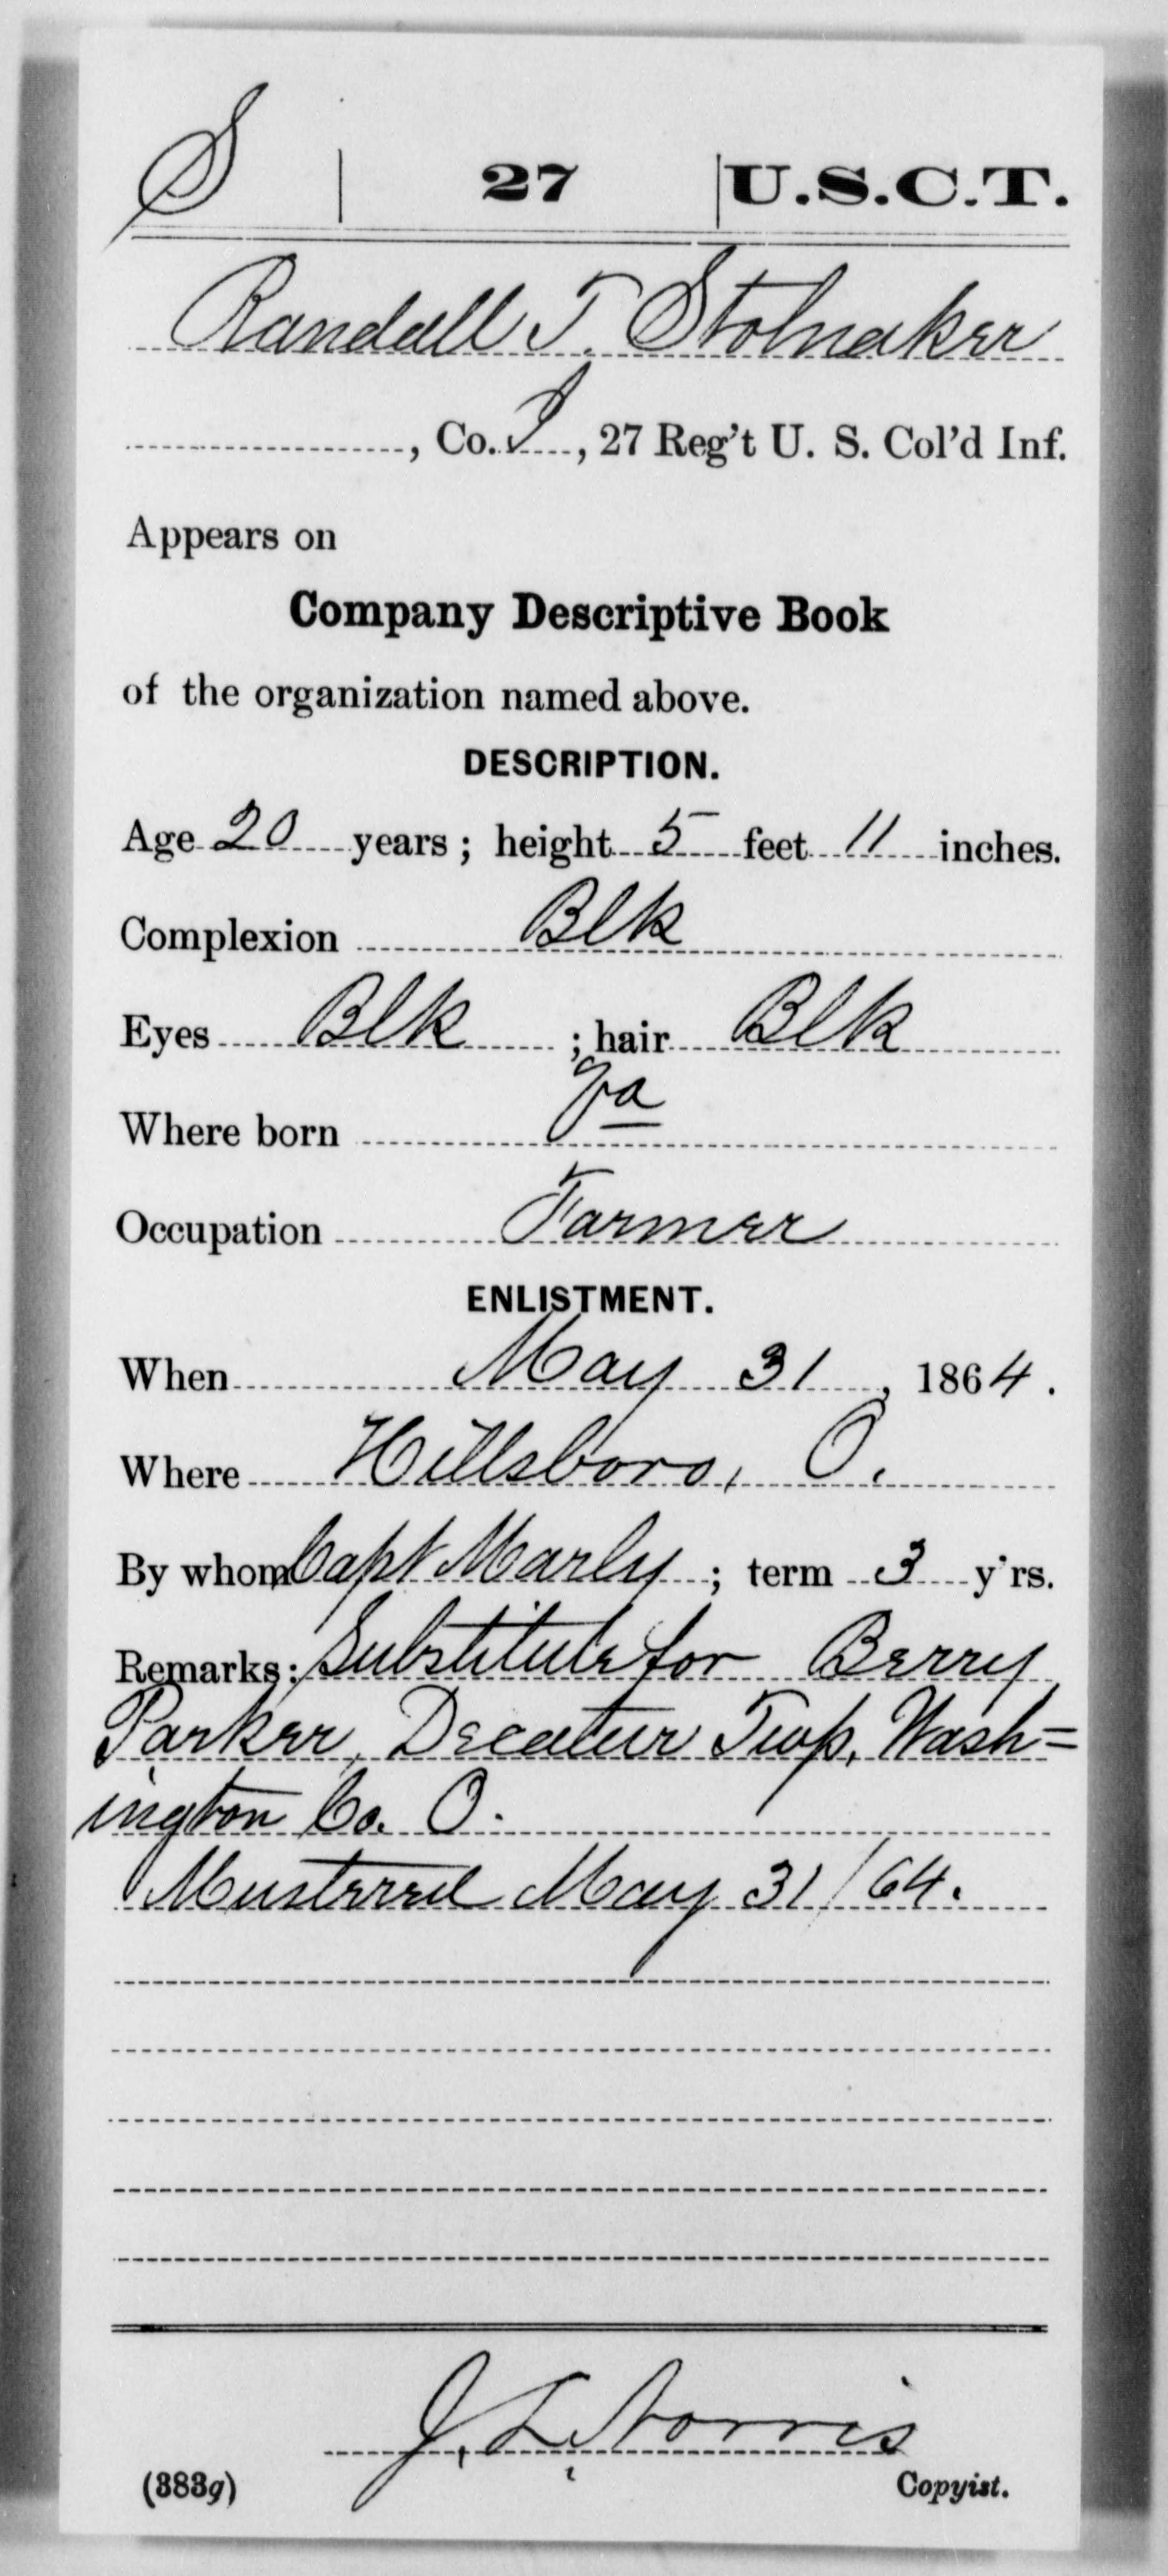 S | 27 | U.S.C.T.
Randall T. Stolnaker
, Co. I, 27 Reg't U. S. Col'd Inf.
Appears on
Company Descriptive Book
of the organization named above.
DESCRIPTION.
Age 20 years; height 5 feet 11 inches.
Complexion Blk
Eyes Blk ; hair Blk
Where born Va
Occupation Farmer
ENLISTMENT.
When May 31, 1864.
Where Hillsboro, O.
By whom Capt Marly; term 3 y'rs.
Remarks: Substitute for Berry
Parker, Decatur Twp, Wash=
ington Co. O.
Mustered May 31/64.
J. L. Norris
(383g) Copyist.